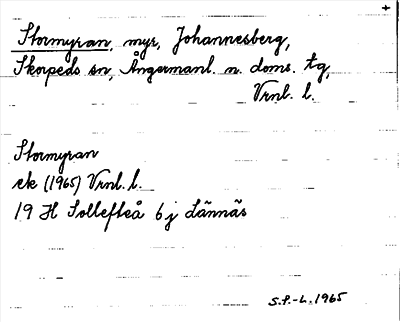 Stormyran, myr, Johannesberg,
Skorpeds sn, Ångermanl. n. doms. tg,
Vrnl. l.
Stormyran
ek (1965) Vrnl. l.
19 H Sollefteå 6 j Lännäs
S.P.-L. 1965